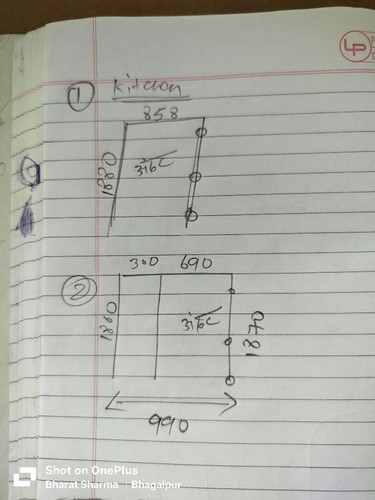 LP
① Kitchen
858
1880
② 300 690
1860
1870
990
Shot on OnePlus
Bharat Sharma | Bhagalpur